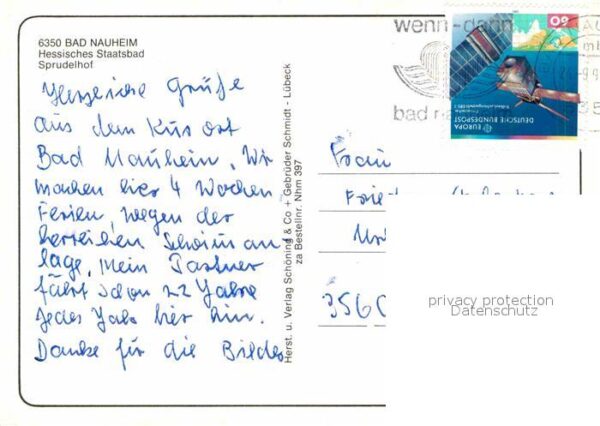 6350 BAD NAUHEIM
Hessisches Staatsbad
Sprudelhof
Herzliche Grüße
aus dem Kurort
Bad Nauheim. Wir
machen hier 4 Wochen
Ferien, wegen der
herrlichen Schwimman
lage. Mein Partner
fährt schon 22 Jahre
jedes Jahr hier hin.
Danke für die Bilder
Herst. u. Verlag Schöning & Co + Gebrüder Schmidt - Lübeck
za Bestellnr. Nhm 397
wenn-dann
bad n
60
EUROPA
DEUTSCHE BUNDESPOST
Frau
3560
privacy protection
Datenschutz